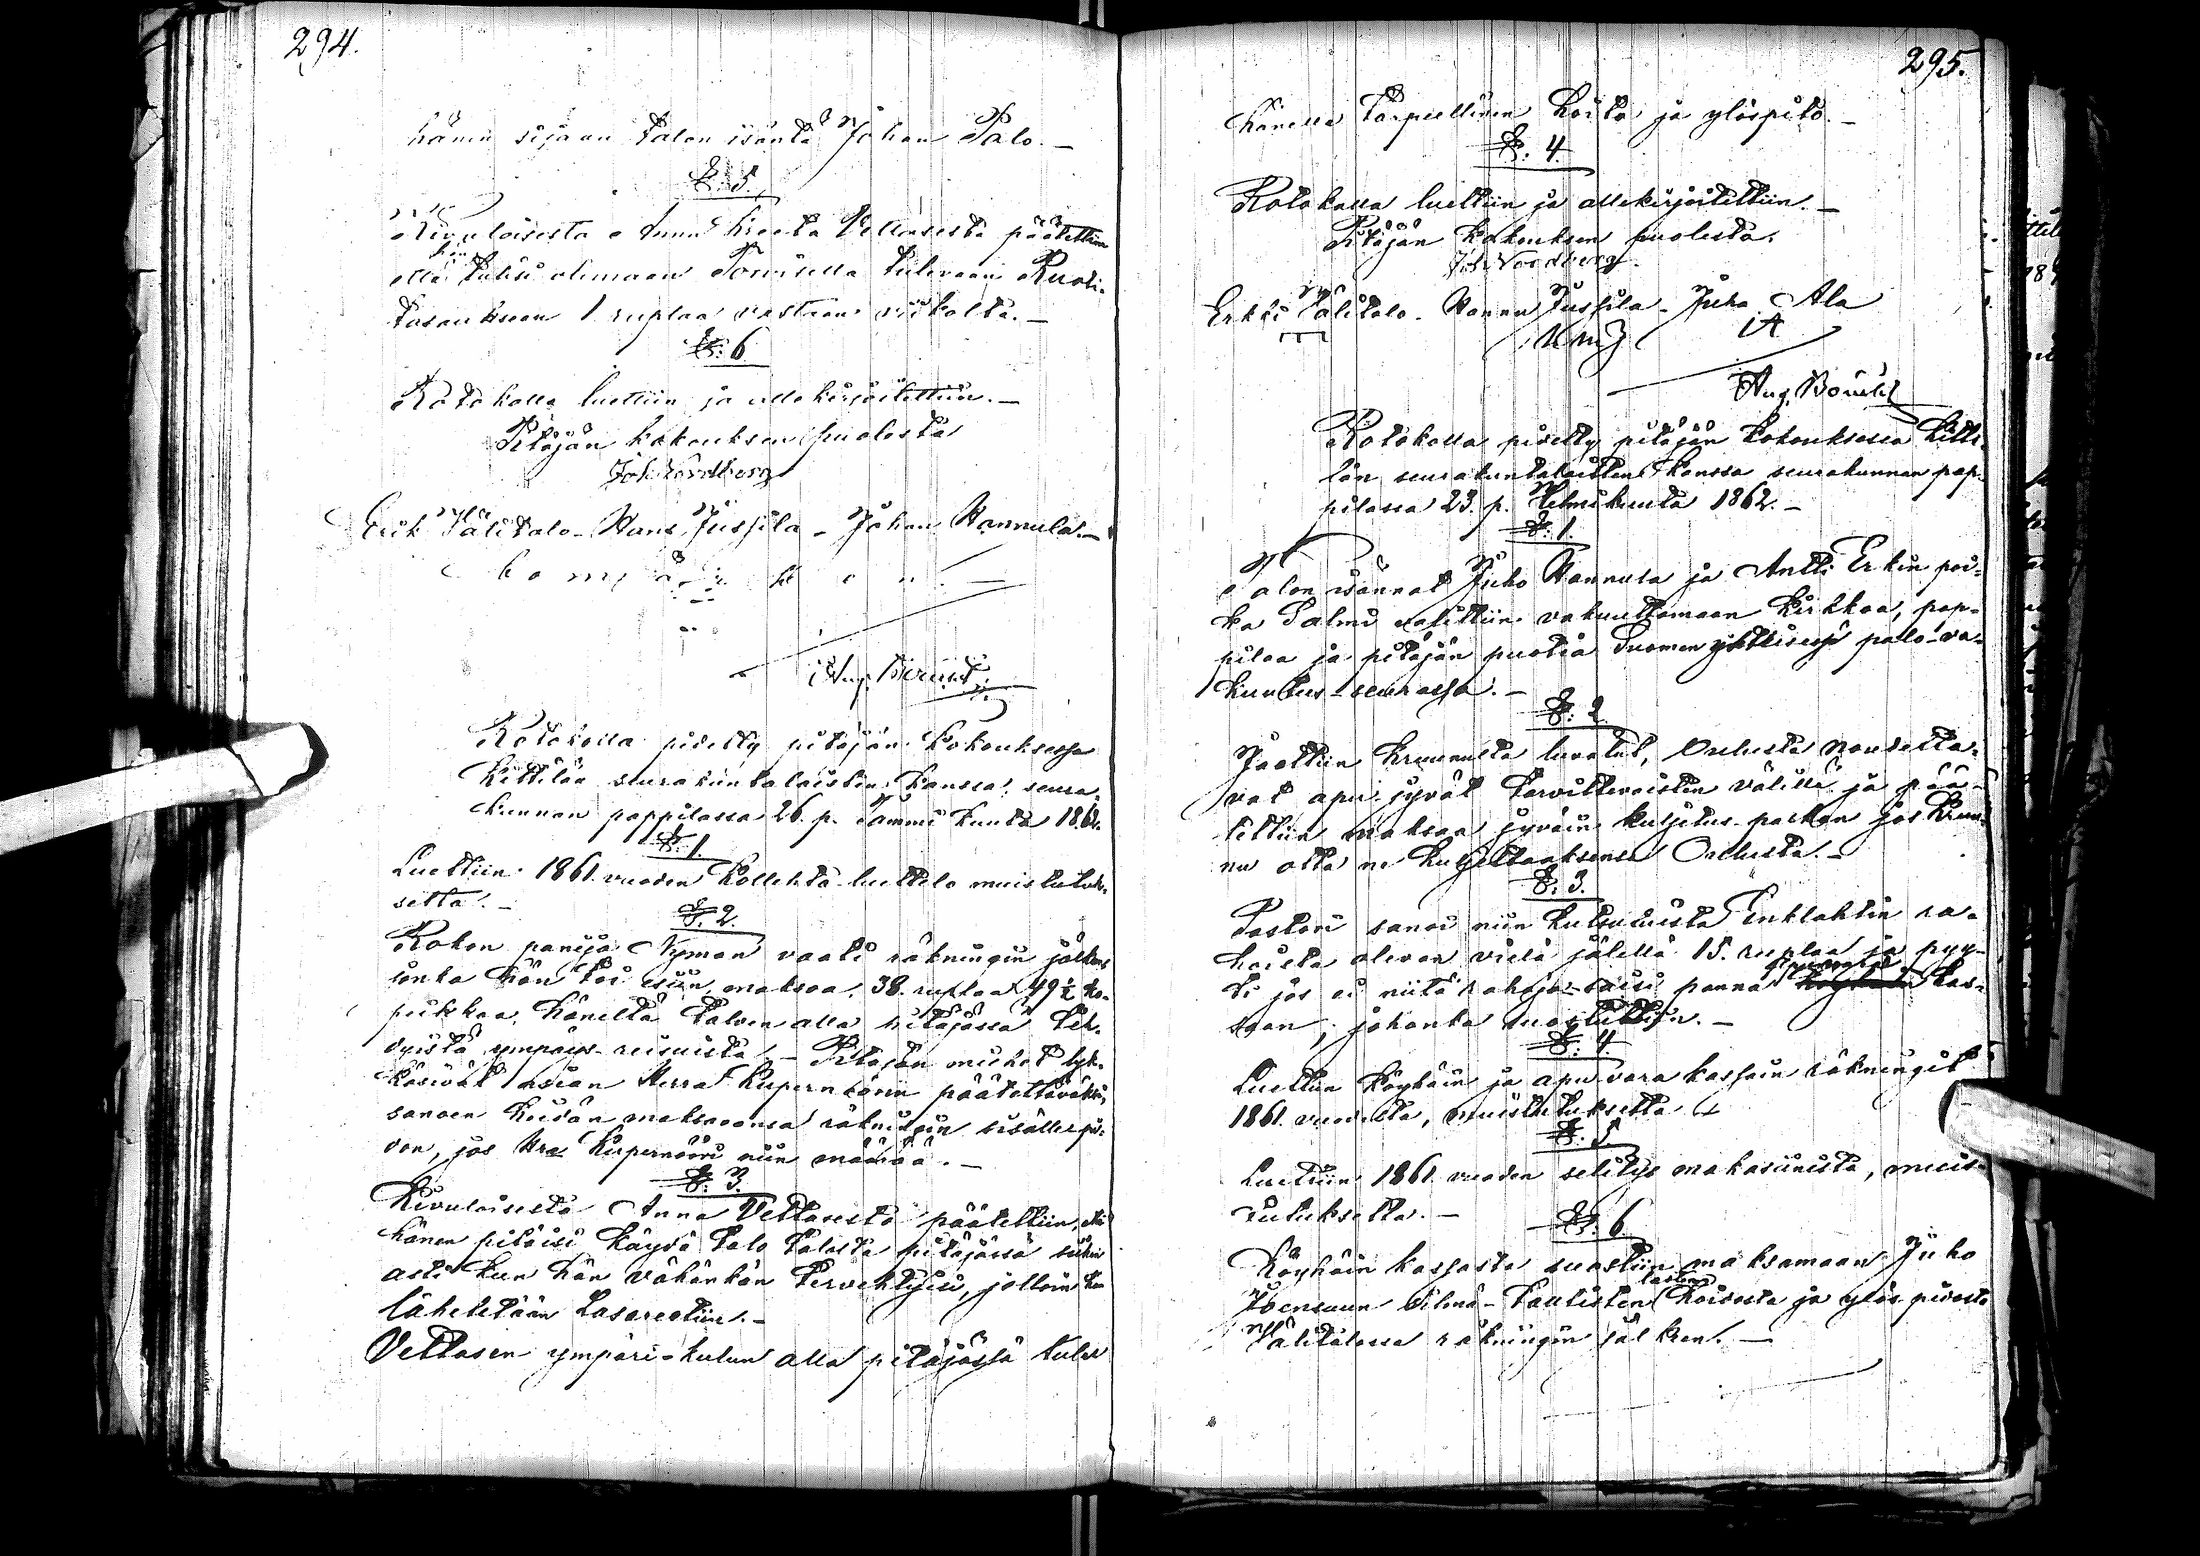 294.
hänen sijaan talon isäntä Johan Palo. —
§. 5.
Kivuloisesta Anna Kreeta Vettasesta päätettiin
että hän tulisi olemaan Tornisella tulevaan Ruoti-
tasaukseen 1 ruplaa vastaan viikolta. —
§. 6
Kotokolla luettiin ja allekirjoitettiin. —
Pitäjän kokouksen puolesta
Joh. Nordberg
Erik Välitalo — Hans Jussila — Johan Hannula. —
Aug.
Rotokolla pidetty pitäjän kokouksessa
Kittilän seurakuntalaisten kanssa, seura-
kunnan pappilassa 26. p. Tammi kuuta 1862.
§. 1.
Luettiin 1861 vuoden Kollehta-luettelo muistutuk-
setta. —
§. 2.
Rokon panija Nyman vaati räkningin jälkeen
jonka hän toi esiin, maksaa, 38. ruplaa 49 ½ ko-
peikkaa, häneltä talven alla pitäjässä teh-
dyistä ympäys-reisuista. — Pitäjän miehet lyk-
käsivät asian Herra Kupernöörin päätettäväksi,
sanoen heidän maksavansa räkningin sisällepi-
don, jos Hra Kupernööri niin määrää. —
§. 3.
Kivuloisesta Anna Vettasesta päätettiin, että
hänen pitäisi käydä talo talosta pitäjässä siihen
asti kun hän vähänkän tervehtyisi, jolloin hän
lähetetään Lasarettiin. —
Vettasen ympäri-kulun alla pitäjässä tulee
295.
hänelle tarpeellinen hoito ja ylöspito. —
§. 4.
Rotokolla luettiin ja allekirjoitettiin. —
Pitäjän kokouksen puolesta.
Joh. Nordberg.
Erkki Välitalo. Hannu Jussila. Juho Ala
Aug.
Rotokolla pidetty pitäjän kokouksessa Kitti-
län seurakuntalaisten kanssa seurakunnan pap-
pilassa 23. p. Helmikuuta 1862. —
§. 1.
Talon isännät Juho Hannula ja Antti Erkin poi-
ka Salmi valittiin vakuuttamaan kirkkoa, pap-
pilaa ja pitäjän puotia Suomen yhteisessä palo-va-
kuutus-seurassa. —
§. 2
Jaettiin kruunulta luvatut, Oulusta noudetta-
vat apu-jyvät tarvittevaisten välillä ja pää-
tettiin maksaa jyväin kuljetus-palkan jos Kruu-
nu otta ne kuljettaaksensa Oulusta. —
§. 3.
Pastori sanoi niin kutsutuista Sinklahtin ra-
hoista olevan vielä jälellä 15. ruplaa ja pyy-
ti jos ei niitä rahoja saisi panna apuvara kas-
saan, johonka suostuttiin. —
§. 4.
Luettiin köyhäin ja apu-vara kassain räkningit
1861. vuodelta, muistutuksetta.
§. 5
Luettiin 1861. vuoden selitys makasiinista, muis-
tutuksetta. —
§. 6
Köyhäin kassasta suostiin maksamaan Juho
Joensuun silmä-tautisten lasten hoidosta ja ylös pidosta
Välitalossa räkningin jälkeen. —